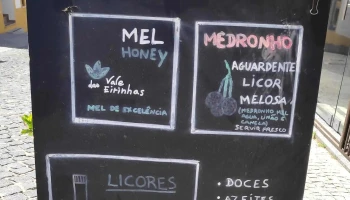 MEL
HONEY
Vale
das Eirinhas
MEL DE EXCELÊNCIA
MEDRONHO
AGUARDENTE
LICOR
MELOSA
(MEDRONHO, MEL
ÁGUA, LIMÃO E
CANELA)
SERVIR FRESCO
LICORES
• DOCES
• AZEITES